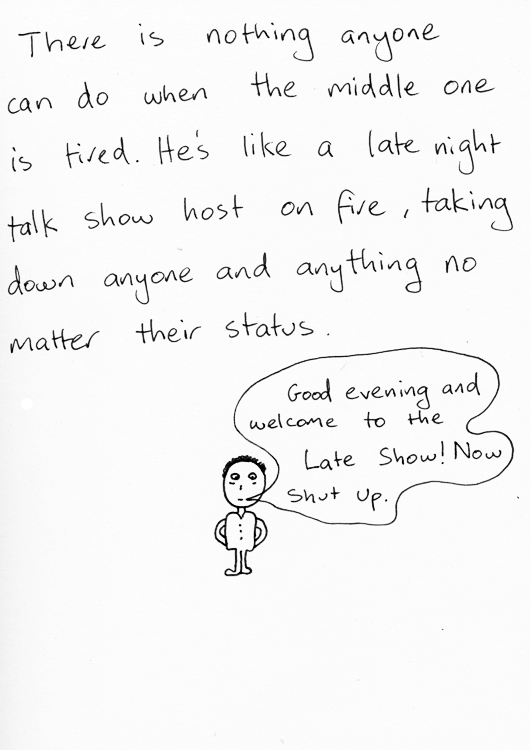 There is nothing anyone
can do when the middle one
is tired. He's like a late night
talk show host on fire, taking
down anyone and anything no
matter their status.
Good evening and
welcome to the
Late Show! Now
shut up.